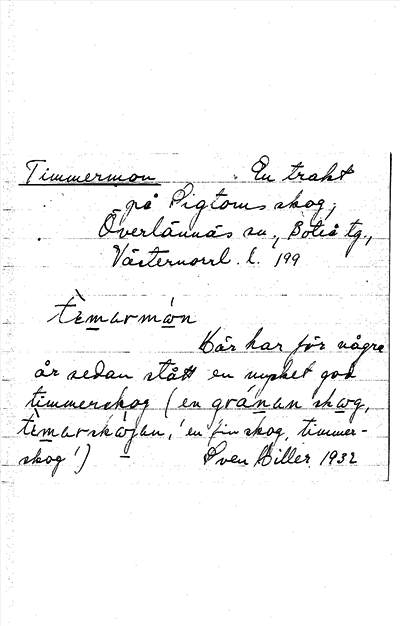 Timmermon En trakt
på Pigtoms skog,
Överlännäs sn, Boteå tg.,
Västernorrl. l. 199
tèmarmón
Här har för några
år sedan stått en mycket god
timmerskog (en gránan skog,
tèmarskojen, 'en fin skog, timmer-
skog') Sven Hiller 1932